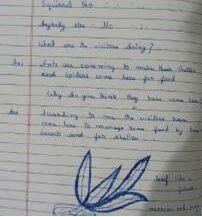 Squirrel No
No
What are the visitors doing?
Ans Ants are comming to make their shelter
and spiders come here for food
Why do you think they have come here?
Ans According to me the visitors have
come here to manage some food by
insects and for shelter.
leaf like a